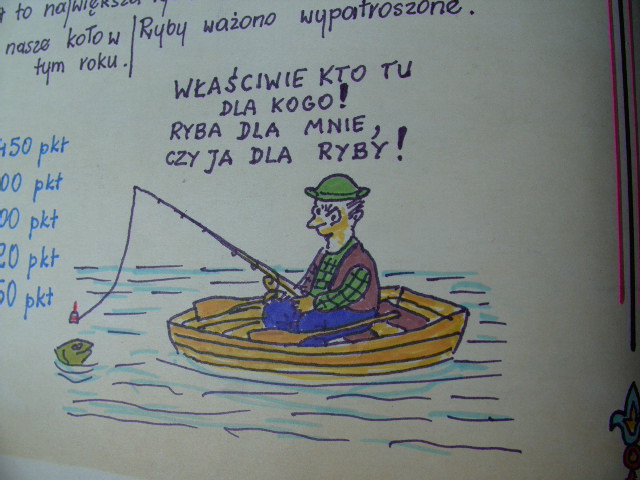 to największa
nasze koło w
tym roku.
Ryby ważono wypatroszone.
WŁAŚCIWIE KTO TU
DLA KOGO!
RYBA DLA MNIE,
CZY JA DLA RYBY!
450 pkt
00 pkt
00 pkt
20 pkt
50 pkt